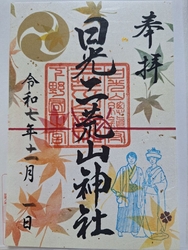 奉拝
日光二荒山神社
令和七年十一月一日